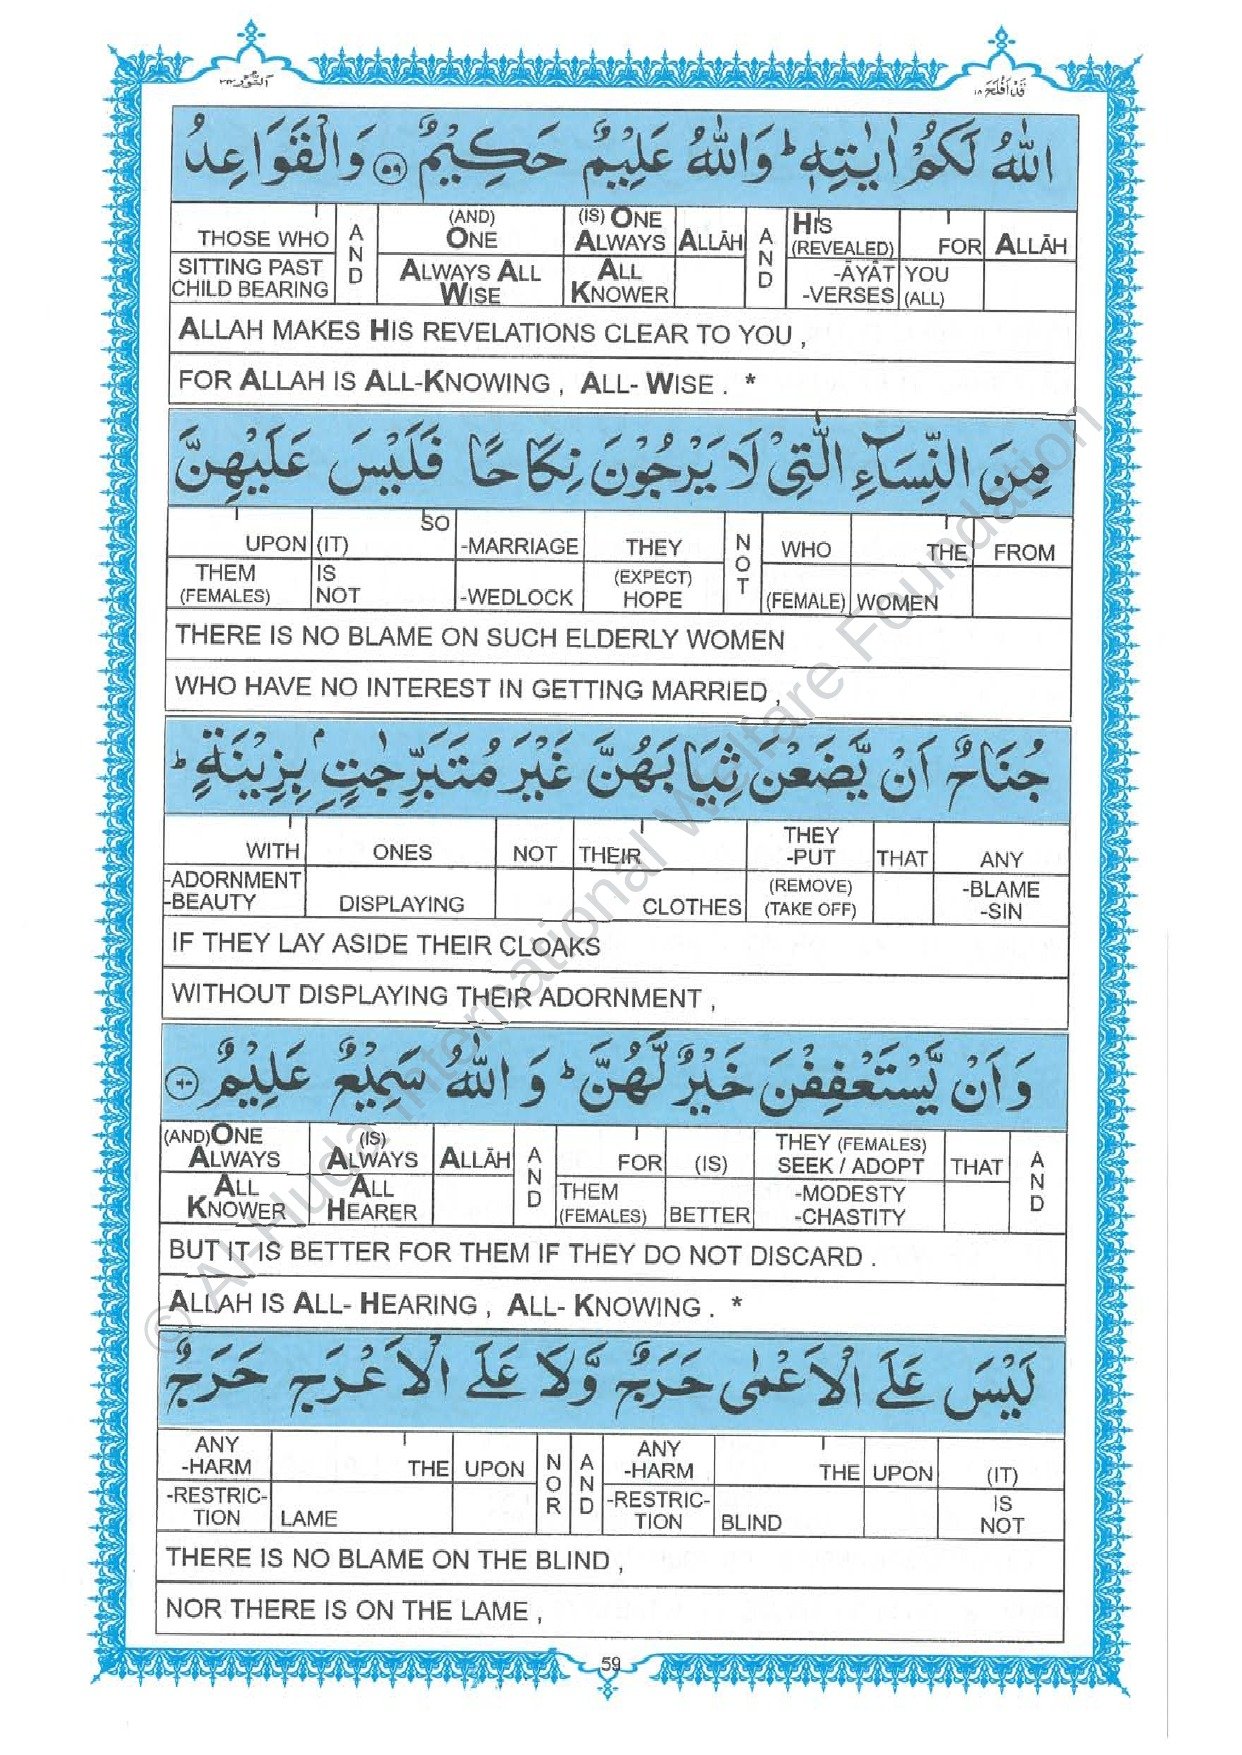 قَدْ اَفْلَحَ ١٨
اَلنُّوْر ٢٤
اللّٰهُ لَكُمْ اٰيٰتِهٖ ؕ وَاللّٰهُ عَلِيْمٌ حَكِيْمٌ ﴿٥٩﴾ وَالْقَوَاعِدُ
THOSE WHO | AND | (AND) ONE | (IS) ONE ALWAYS | ALLĀH | AND | HIS (REVEALED) | FOR | ALLĀH
SITTING PAST CHILD BEARING | ALWAYS ALL WISE | ALL KNOWER | -ĀYĀT -VERSES | YOU (ALL)
ALLAH MAKES HIS REVELATIONS CLEAR TO YOU ,
FOR ALLAH IS ALL-KNOWING , ALL- WISE . *
مِنَ النِّسَآءِ الّٰتِيْ لَا يَرْجُوْنَ نِكَاحًا فَلَيْسَ عَلَيْهِنَّ
UPON | (IT) SO | -MARRIAGE | THEY | NOT | WHO | THE | FROM
THEM (FEMALES) | IS NOT | -WEDLOCK | (EXPECT) HOPE | (FEMALE) | WOMEN
THERE IS NO BLAME ON SUCH ELDERLY WOMEN
WHO HAVE NO INTEREST IN GETTING MARRIED ,
جُنَاحٌ اَنْ يَّضَعْنَ ثِيَابَهُنَّ غَيْرَ مُتَبَرِّجٰتٍۭ بِزِيْنَةٍ ؕ
WITH | ONES | NOT | THEIR | THEY -PUT | THAT | ANY
-ADORNMENT -BEAUTY | DISPLAYING | CLOTHES | (REMOVE) (TAKE OFF) | -BLAME -SIN
IF THEY LAY ASIDE THEIR CLOAKS
WITHOUT DISPLAYING THEIR ADORNMENT ,
وَ اَنْ يَّسْتَعْفِفْنَ خَيْرٌ لَّهُنَّ ؕ وَ اللّٰهُ سَمِيْعٌ عَلِيْمٌ ﴿٦٠﴾
(AND)ONE ALWAYS | (IS) ALWAYS | ALLĀH | AND | FOR | (IS) | THEY (FEMALES) SEEK / ADOPT | THAT | AND
ALL KNOWER | ALL HEARER | THEM (FEMALES) | BETTER | -MODESTY -CHASTITY
BUT IT IS BETTER FOR THEM IF THEY DO NOT DISCARD .
ALLAH IS ALL- HEARING , ALL- KNOWING . *
لَيْسَ عَلَى الْاَعْمٰى حَرَجٌ وَّلَا عَلَى الْاَعْرَجِ حَرَجٌ
ANY -HARM | THE | UPON | NOR | AND | ANY -HARM | THE | UPON | (IT)
-RESTRIC-TION | LAME | -RESTRIC-TION | BLIND | IS NOT
THERE IS NO BLAME ON THE BLIND ,
NOR THERE IS ON THE LAME ,
59
© Al-Huda International Welfare Foundation